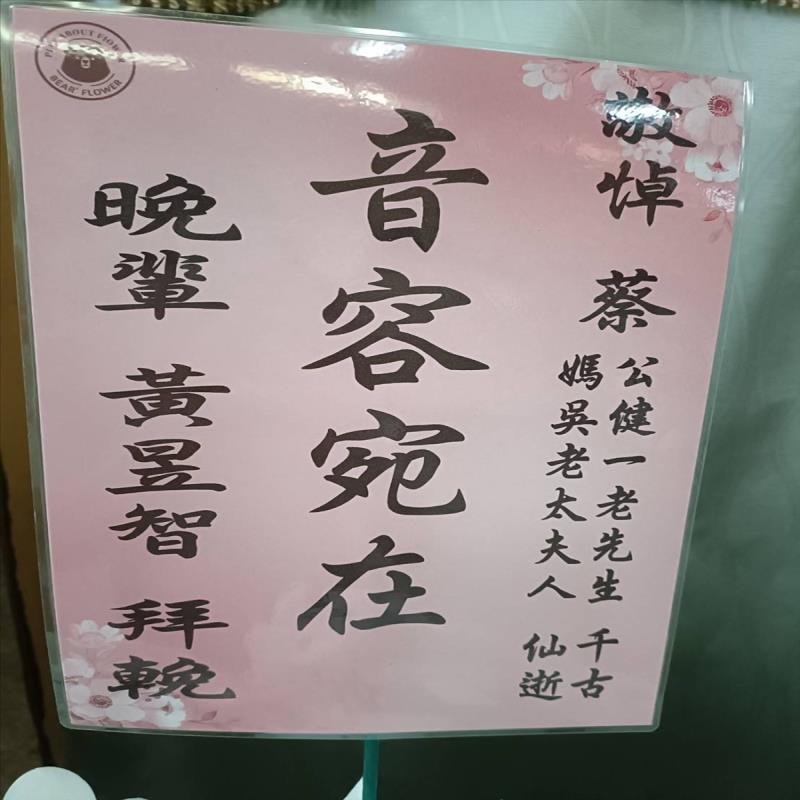 敬悼 蔡
公健一老先生 千古
媽吳老太夫人 仙逝
音容宛在
晚輩 黃昱智 拜輓
BEAR' FLOWER